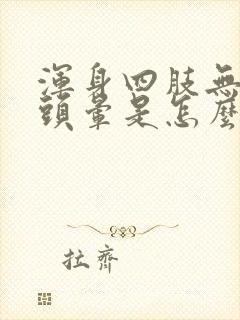 渾身四肢無
頭暈是怎麼
拉齊